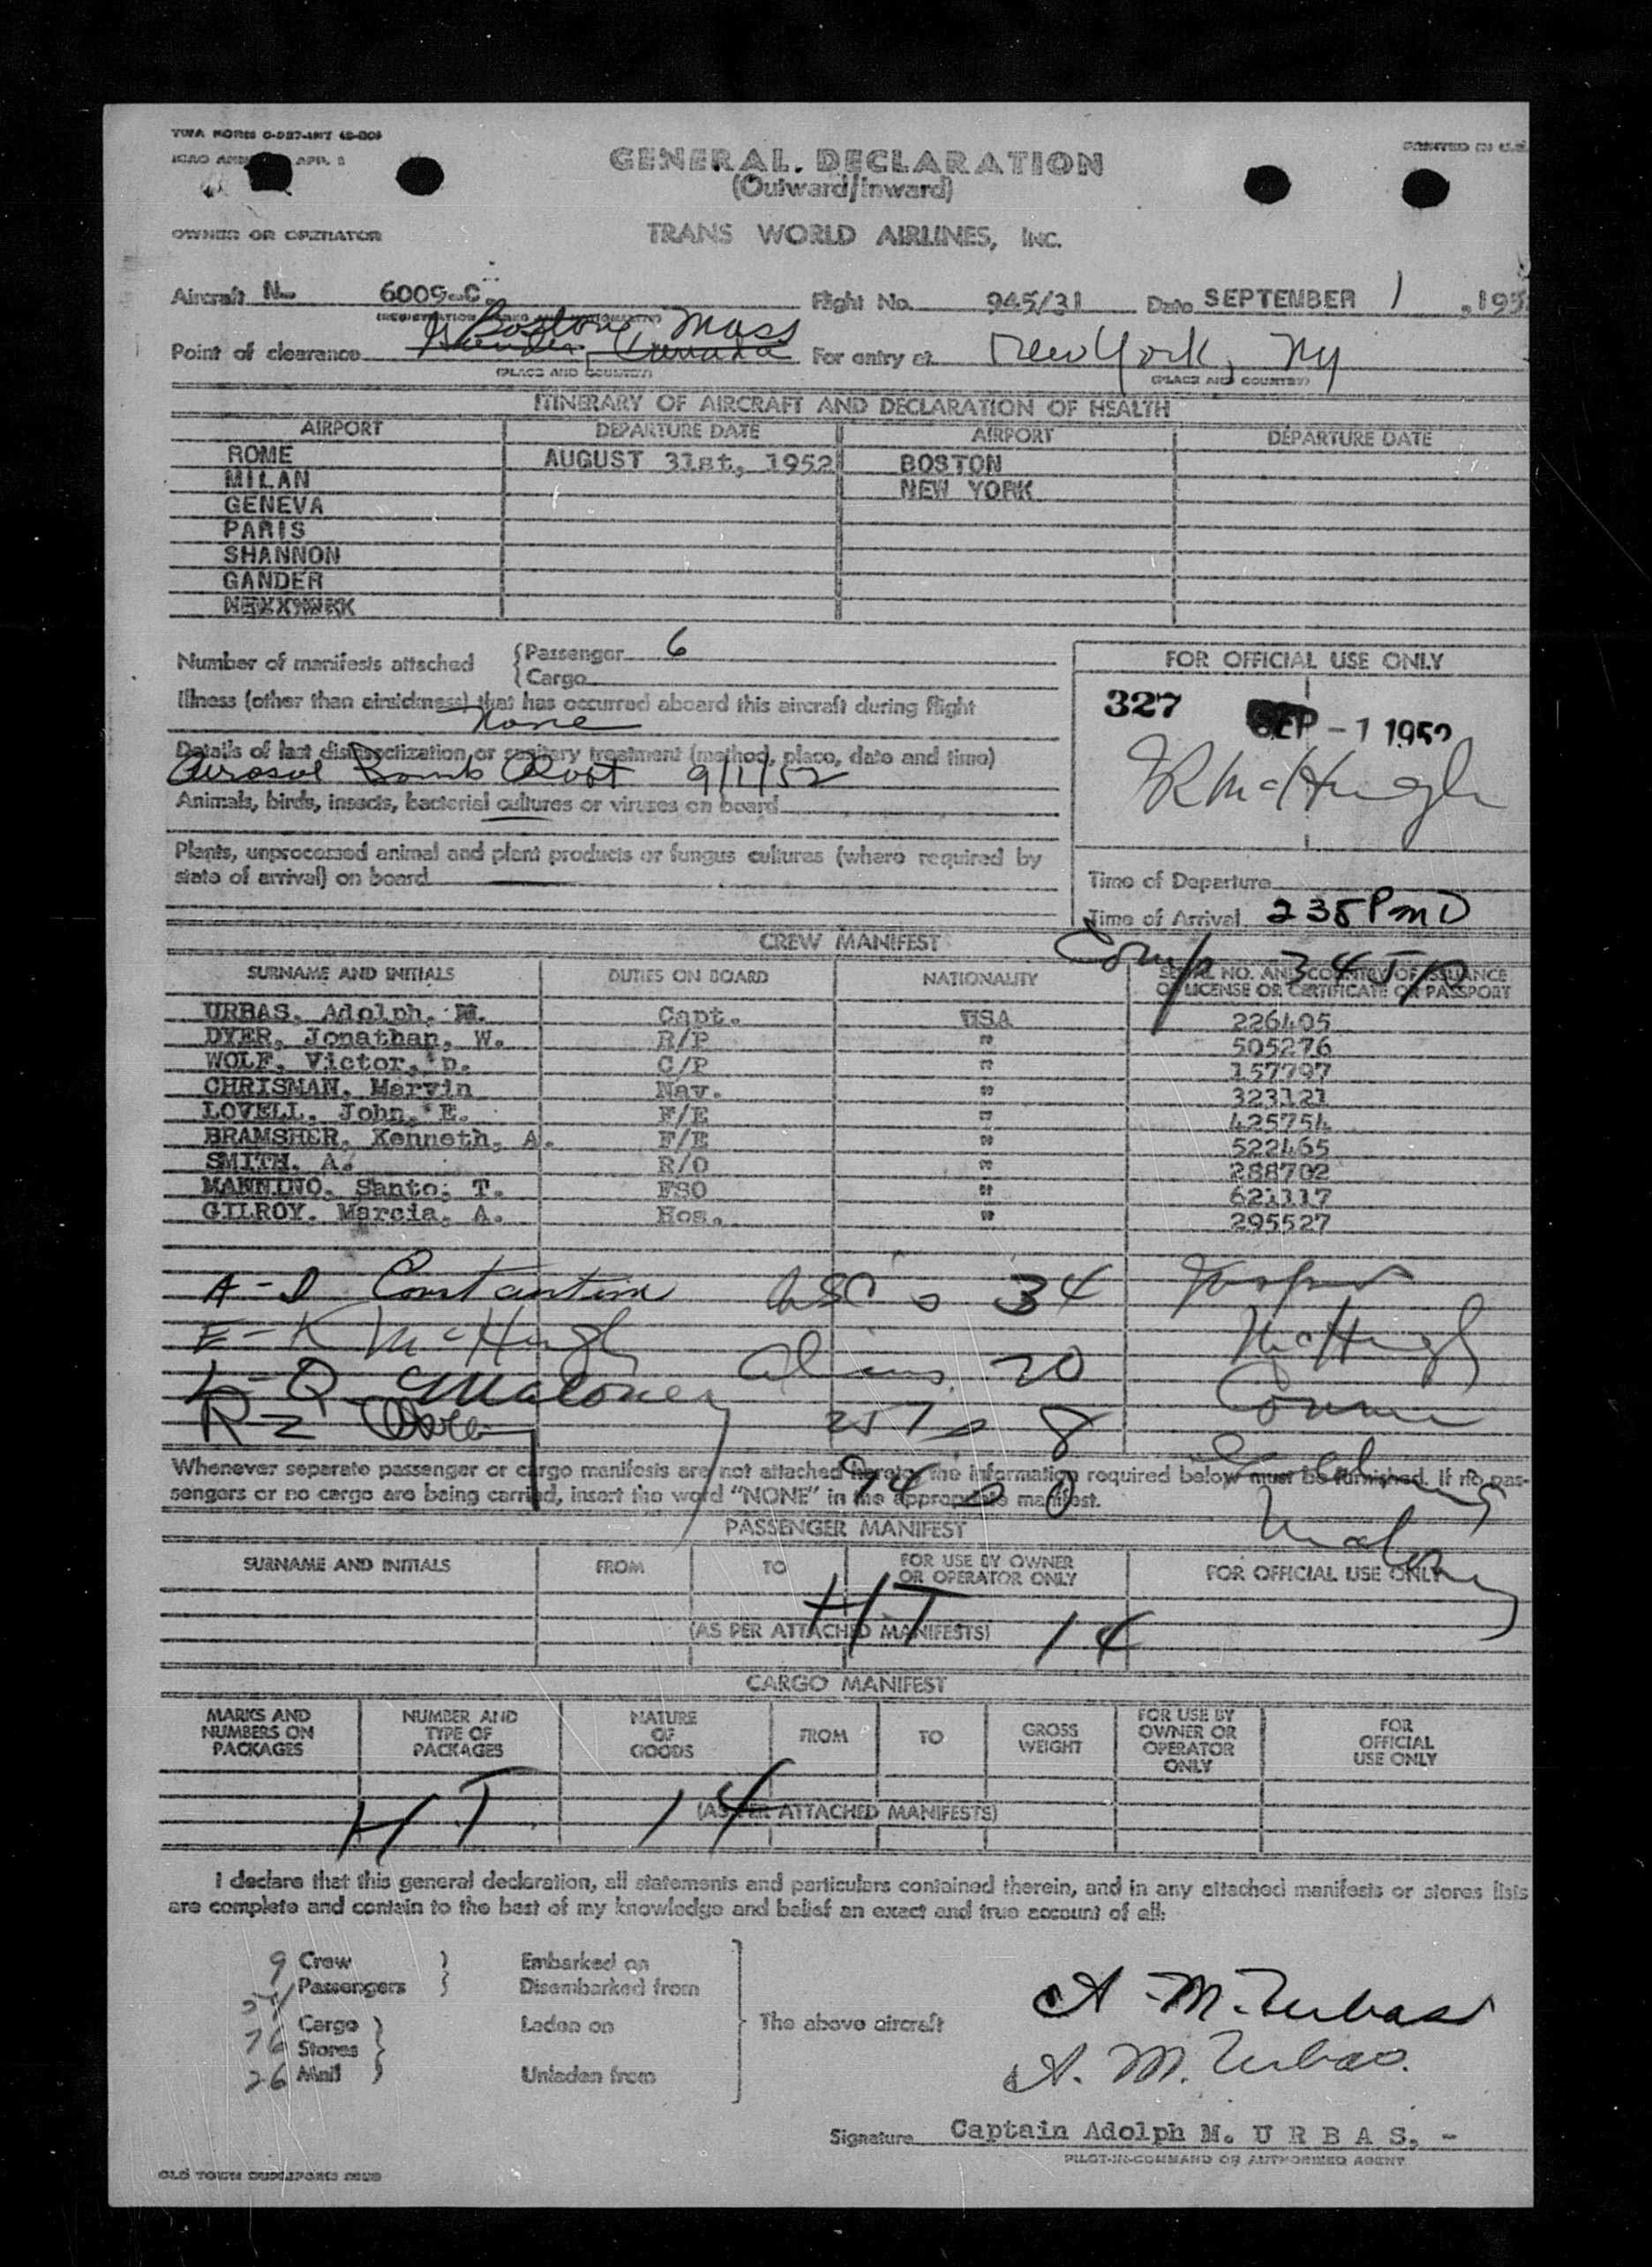 TWA FORM
PRINTED IN U.S.
GENERAL DECLARATION
(Outward/Inward)
OWNER OR OPERATOR
TRANS WORLD AIRLINES, INC.
Aircraft N 6009-C Flight No. 945/31 Date SEPTEMBER 1, 195
(REGISTRATION MARKS AND NATIONALITY)
Boston, Mass
Point of clearance Gander, Canada For entry at New York, NY
(PLACE AND COUNTRY) (PLACE AND COUNTRY)
ITINERARY OF AIRCRAFT AND DECLARATION OF HEALTH
AIRPORT DEPARTURE DATE AIRPORT DEPARTURE DATE
ROME AUGUST 31st, 1952 BOSTON
MILAN NEW YORK
GENEVA
PARIS
SHANNON
GANDER
Number of manifests attached {Passenger 6
{Cargo
FOR OFFICIAL USE ONLY
Illness (other than airsickness) that has occurred aboard this aircraft during flight
None
327 SEP -1 1952
Details of last disinsectization or sanitary treatment (method, place, date and time)
Aerosol Bomb 9/1/52
McHugh
Animals, birds, insects, bacterial cultures or viruses on board
Plants, unprocessed animal and plant products or fungus cultures (where required by
state of arrival) on board
Time of Departure
Time of Arrival 235 PM D
CREW MANIFEST
Comp 345 P
SURNAME AND INITIALS DUTIES ON BOARD NATIONALITY SERIAL NO. AND COUNTRY OF ISSUANCE
OF LICENSE OR CERTIFICATE OR PASSPORT
URBAS, Adolph, M. Capt. USA 226405
DYER, Jonathan, W. R/P " 505276
WOLF, Victor, D. C/P " 157797
CHRISMAN, Marvin Nav. " 323121
LOVELL, John, E. F/E " 425754
BRAMSHER, Kenneth, A. F/E " 522465
SMITH, A. R/O " 288702
MANNINO, Santo, T. FSO " 621117
GILROY, Marcia, A. Hos. " 295527
A-D Constantine USC 34
E-K McHugh McHugh
L-Q Maloney Aliens 20
R-Z 8
Whenever separate passenger or cargo manifests are not attached hereto, the information required below must be furnished. If no pas-
sengers or no cargo are being carried, insert the word "NONE" in the appropriate manifest.
PASSENGER MANIFEST
Maloney
SURNAME AND INITIALS FROM TO FOR USE BY OWNER
OR OPERATOR ONLY FOR OFFICIAL USE ONLY
HT 14
(AS PER ATTACHED MANIFESTS)
CARGO MANIFEST
MARKS AND
NUMBERS ON
PACKAGES NUMBER AND
TYPE OF
PACKAGES NATURE
OF
GOODS FROM TO GROSS
WEIGHT FOR USE BY
OWNER OR
OPERATOR
ONLY FOR
OFFICIAL
USE ONLY
HT 14
(AS PER ATTACHED MANIFESTS)
I declare that this general declaration, all statements and particulars contained therein, and in any attached manifests or stores lists
are complete and contain to the best of my knowledge and belief an exact and true account of all:
9 Crew } Embarked on
54 Passengers } Disembarked from
Cargo } Laden on The above aircraft
76 Stores
26 Mail } Unladen from
A. M. Urbas
A. M. Urbas.
Signature Captain Adolph M. U R B A S. -
PILOT-IN-COMMAND OR AUTHORIZED AGENT
OLD TOWN